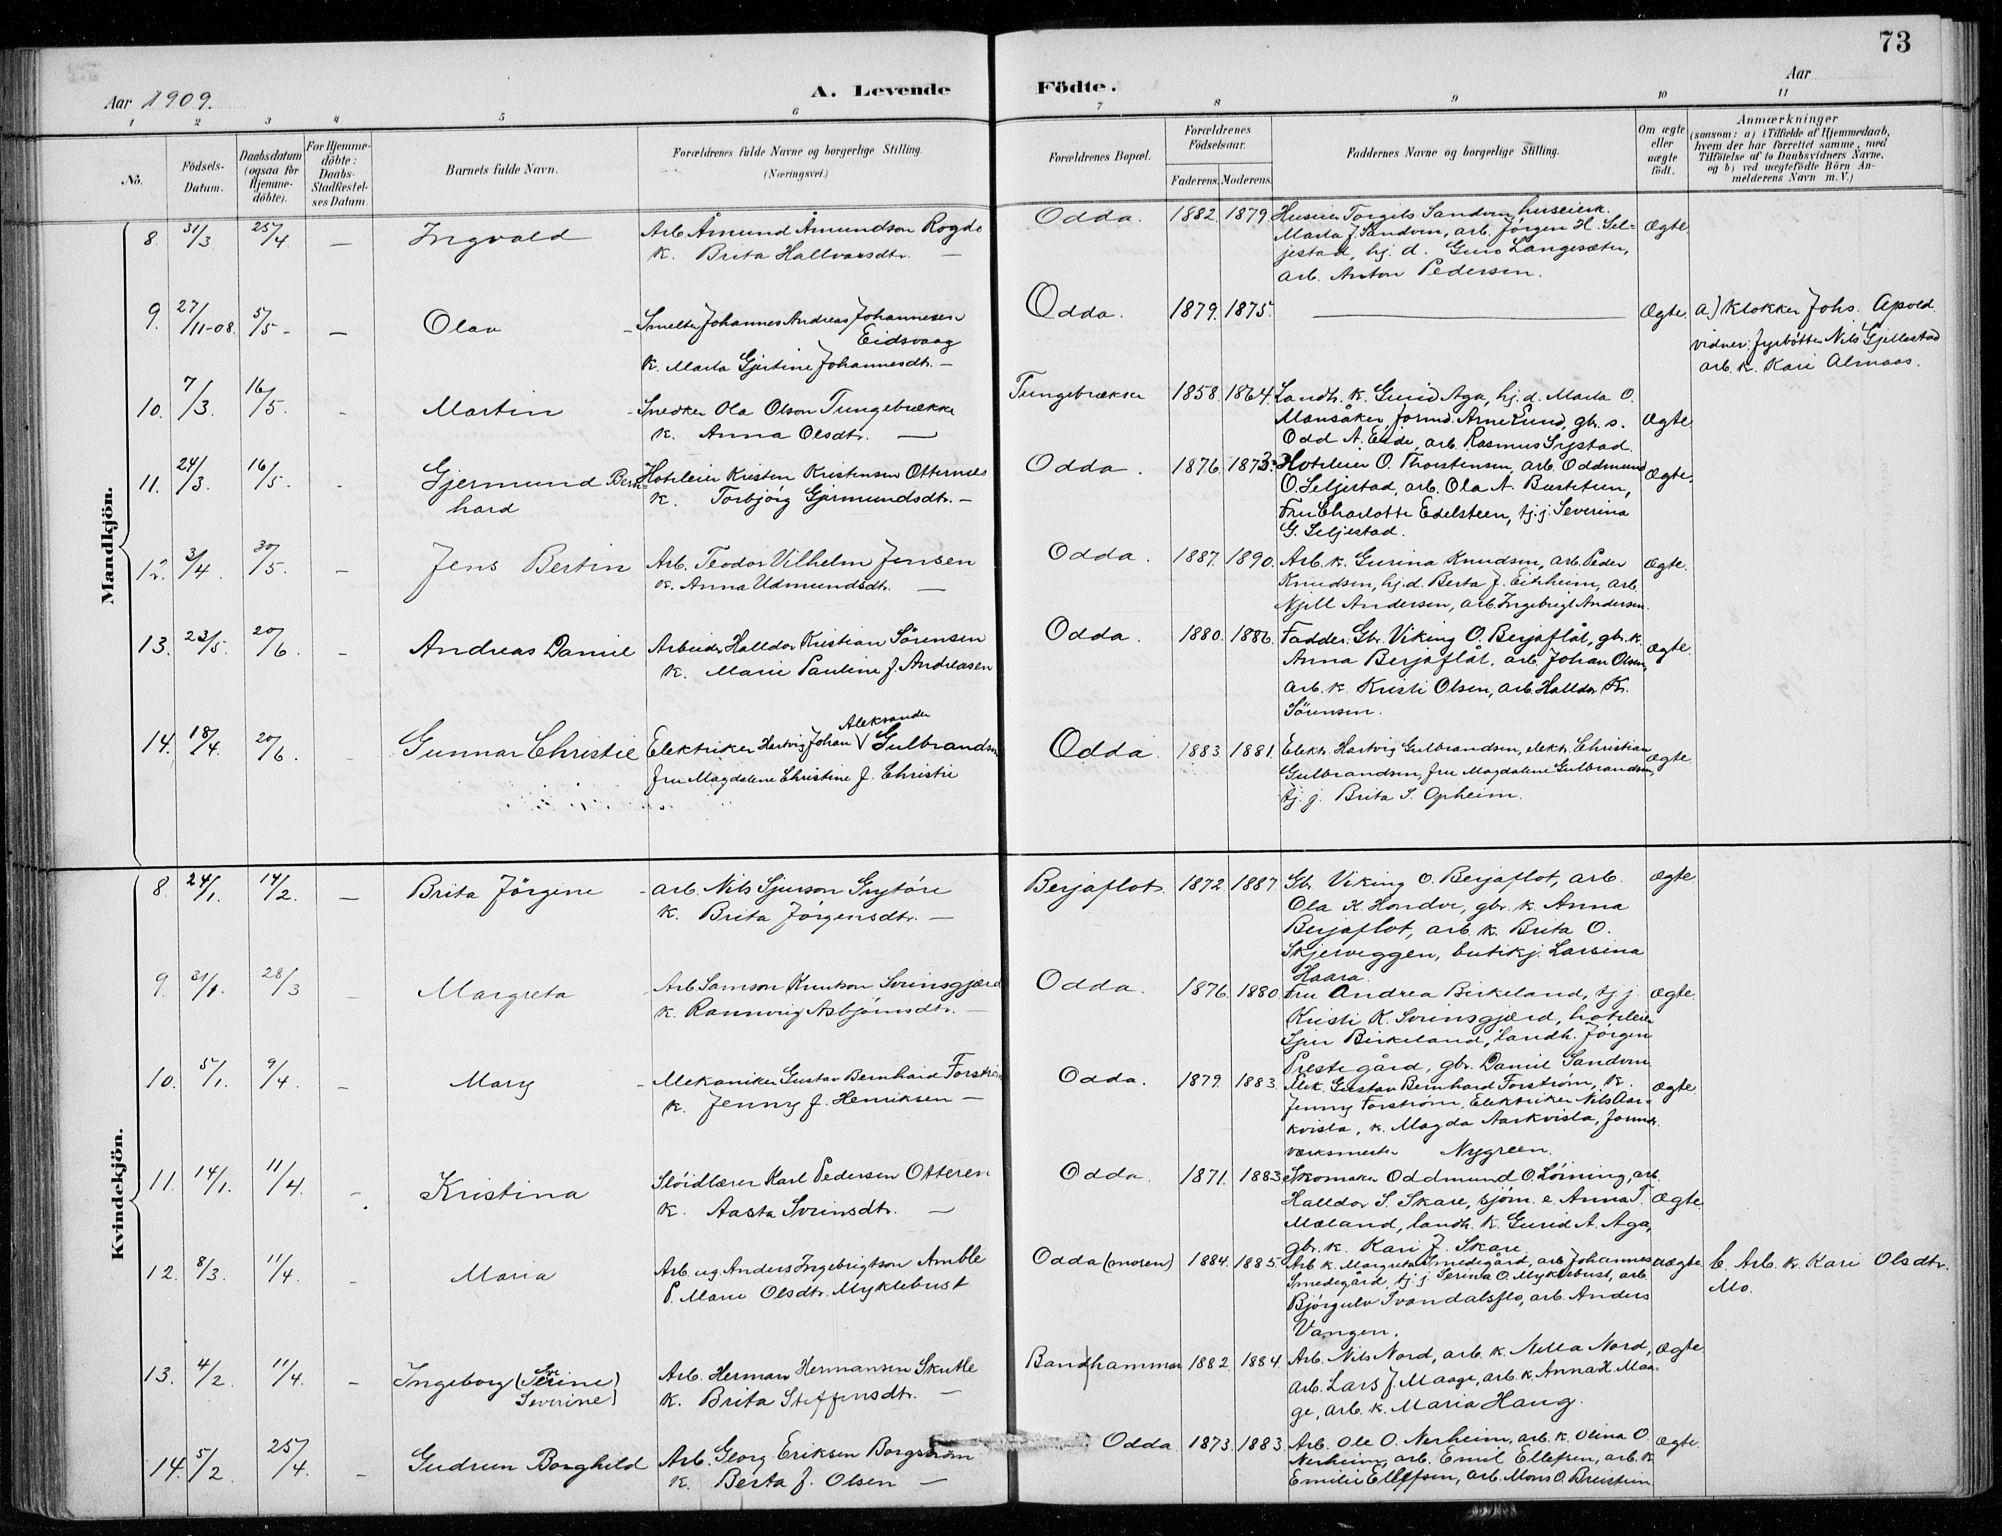 73
Aar 1909.
A. Levende Födte.
Aar
1 2 3 4 5 6 7 8 9 10 11
No.
Födsels-Datum.
Daabsdatum (ogsaa for Hjemme-döbte).
For Hjemme-döbte: Daabs-Stadfæstel-ses Datum.
Barnets fulde Navn.
Forældrenes fulde Navne og borgerlige Stilling. (Næringsvei.)
Forældrenes Bopæl.
Forældrenes Födselsaar.
Faderens. Moderens.
Faddernes Navne og borgerlige Stilling.
Om ægte eller uægte födt.
Anmærkninger
(saasom: a) i Tilfælde af Hjemmedaab, hvem der har forrettet samme, med Tilföielse af to Daabsvidners Navne, og b) ved uægtefödte Börn An-melderens Navn m. V.)
Mandkjön.
8. 31/3 25/4 — Ingvald
Arb. Åmund Åmundson Rogde
k. Brita Hallvarsdtr. —
Odda. 1882. 1879.
Huseier Torgils Sandven, huseierk.
Marta J. Sandven, arb. Jørgen H. Sel-
jestad, hj. d. Guro Langesæter,
arb. Anton Pedersen.
Ægte.
9. 27/11-08. 5/5 - — Olav
Smelter Johannes Andreas Johannesen
Eidsvaag
k. Marta Gjertine Johannesdtr. —
Odda. 1879. 1875. —
Ægte.
a) Klokker Johs. Apold
vidner: fyrbøtter Nils Gjellestad
arb. k. Kari Almaas.
10. 7/3. 16/5. - Martin
Snedker Ola Olson Tungebrække
k. Anna Olsdtr. —
Tungebrække 1858. 1864.
Landh. k. Gurid Aga, hj. d. Marta O.
Mansåker, formd. Arne Lund, gbr. s.
Odd A. Eide, arb. Rasmus Sejestad.
Ægte
11. 24/3. 16/5. - Gjermund Bern-
hard
Hoteleier Kristen Kristensen Otternes
k. Torbjörg Gjermundsdtr. —
Odda. 1876. 1873.
Hoteleier O. Thorstensen, arb. Oddmund
O. Seljestad, arb. Ola A. Bustetun,
Fru Charlotte Edelsteen, tj. j. Severina
G. Seljestad.
Ægte.
12. 3/4. 30/5. — Jens Bertin
Arb. Teodor Vilhelm Jensen
k. Anna Udmundsdtr. —
Odda. 1887. 1890.
Arb. k. Gurina Knudsen, arb. Peder
Knudsen, hj. d. Berta J. Eitrheim, arb.
Njell Andersen, arb. Ingebrigt Andersen.
Ægte.
13. 23/5. 20/6. - Andreas Daniel
Arbeider Halldor Kristian Sörensen
k. Marie Pauline J. Andreasen
Odda. 1880. 1886.
Fadder: Gbr. Viking O. Berjaflåt, gbr. k.
Anna Berjaflåt, arb. Johan Olsen,
arb. k. Kristi Olsen, arb. Halldor Kr.
Sörensen.
Ægte.
14. 18/4. 20/6. - Gunnar Christie
Aleksander
Elektriker Hartvig Johan V Gulbrandsen
fru Magdalene Christine J. Christie
Odda. 1883. 1881.
Elektr. Hartvig Gulbrandsen, elektr. Christian
Gulbrandsen, fru Magdalene Gulbrandsen,
tj. j. Brita S. Opheim.
Ægte
Kvindekjön.
8. 24/1. 14/2. — Brita Jörgine
Arb. Nils Sjurson Grytöre
k. Brita Jörgensdtr. —
Berjaflot. 1872. 1887.
Gbr. Viking O. Berjaflot, arb.
Ola K. Hondve, gbr. k. Anna
Berjaflot, arb. k. Brita O.
Skjerveggen, butikj. Larsina
Haara.
Ægte
9. 31/1. 28/3 — Margreta
Arb. Samson Knutson Sveinsgjærd
k. Rannveig Asbjörnsdtr. —
Odda. 1876. 1880.
Fru Andrea Birkeland, tj. j.
Kristi K. Sveinsgjærd, hoteleier
Sjur Birkeland, landh. Jörgen
Prestegård, gbr. Daniel Sandven
Ægte.
10. 5/1. 9/4. - Mary
Mekaniker Gustav Bernhard Forström
k. Jenny J. Henriksen —
Odda. 1879. 1883.
Mek. Gustav Bernhard Forström, k.
Jenny Forström, Elektriker Nils Aar-
kvisla, k. Magda Aarkvisla, formd.
værksmester Nygreen.
Ægte.
11. 14/1. 11/4. - Kristina
Slöidlærer Karl Pedersen Otteren
k. Aasta Sveinsdtr. —
Odda. 1871. 1883.
Skomaker Oddmund O. Löining, arb.
Halldor S. Skare, sjöm. e. Anna T.
Mæland, landh. k. Gurid A. Aga,
gbr. k. Kari J. Skare.
Ægte.
12. 8/3. 11/4. - Maria
Arb. ug. Anders Ingebrigtson Amble
P. Marie Olsdtr. Myklebust
Odda (moren) 1884. 1885.
Arb. k. Margreta Smedegård, arb. Johannes
Smedegård, tj. j. Serina O. Myklebust, arb.
Björgulv Svandalsflo, arb. Anders
Vangen.
uægte.
b. Arb. k. Kari Olsdtr.
Mo.
13. 4/2. 11/4. - Ingeborg (Serine)
Severine)
Arb. Herman Hermansen Skutle
k. Brita Steffensdtr. —
Bandhammar 1882. 1884.
Arb. Nils Nord, arb. k. Nilla Nord,
arb. Lars J. Maage, arb. k. Anna H. Maa-
ge, arb. k. Maria Haug.
Ægte.
14. 5/2. 25/4. - Gudrun Borghild
Arb. Georg Eriksen Borgström
k. Berta J. Olsen —
Odda 1873. 1883.
Arb. Ole O. Nerheim, arb. k. Olina O.
Nerheim, arb. Emil Ellefsen, arb. k.
Emilie Elleffsen, arb. Mons O. Breistein
Ægte.